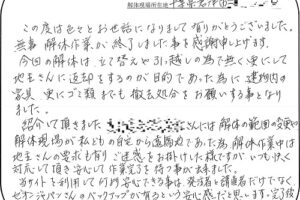 解体現場所在地 千葉県君津市
この度は色々とお世話になりまして有りがとうございました。
無事 解体作業が終了しました事を感謝申し上げます。
今回の解体は、立て替えや引っ越しの為で無く更にして
地主さんに返却をするのが目的であった為に建物内の
家具、更にゴミ類までも撤去処分をお願いする事となり
ました。
紹介して頂きました さんには解体の範囲の変更や
解体現場が私どもの自宅から遠隔地であった為、解体作業中は
地主さんの要求も有りご迷惑をお掛けした様ですがいつも快く
対応して頂き安心して作業完了を待つ事が出来ました。
当サイトを利用して何より安心できる事は発注者と請負者だけでなく
さんのバックアップが有るという安心感だと思います。完了後